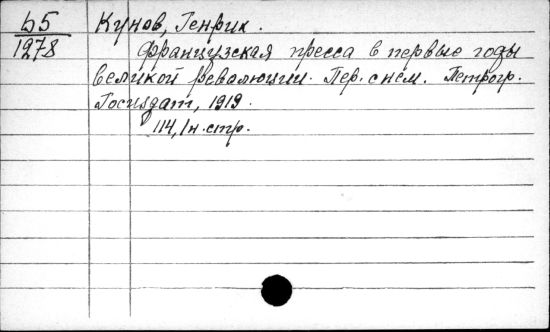 Б5 Кунов, Генрих.
1278 Французская пресса в первые годы
великой революции. Пер. с нем. Петрогр.
Госиздат, 1919.
114, 1 н. стр.